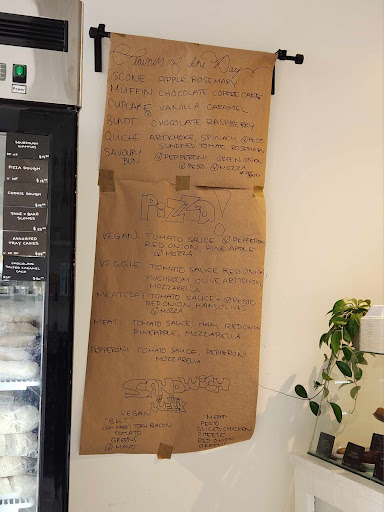 Flavours of the Day
SCONE APPLE ROSEMARY
MUFFIN CHOCOLATE COFFEE CAKE
CUPCAKE VANILLA CARAMEL
BUNDT CHOCOLATE RASPBERRY
QUICHE ARTICHOKE, SPINACH, @FETA
SUNDRIED TOMATO, ROSEMARY
SAVOURY @PEPPERONI GREEN ONION
BUN @PESTO @MOZZA
PIZZA!
VEGAN: TOMATO SAUCE @PEPPERONI
RED ONION, PINEAPPLE
@MOZZA
VEGGIE: TOMATO SAUCE RED ONION
MUSHROOM, OLIVE ARTICHOKE
MOZZARELLA
TOMATO SAUCE + @PESTO
RED ONION HAM OLIVE
@MOZZA
MEAT: TOMATO SAUCE, HAM, RED ONION
PINEAPPLE, MOZZARELLA
PEPPERONI: TOMATO SAUCE, PEPPERONI
MOZZARELLA
SANDWICH
WEEK
VEGAN
BACON
TOMATO
GREENS
@MAYO
MEAT
PESTO
SLICED CHICKEN
CHEESE
RED ONION
GREENS
Power
SOURDOUGH
WAFFLES
PIZZA DOUGH
COOKIE DOUGH
TAKE + BAKE
SCONES
ASSORTED
TRAY CAKES
CHOCOLATE
SALTED CARAMEL
CAKE